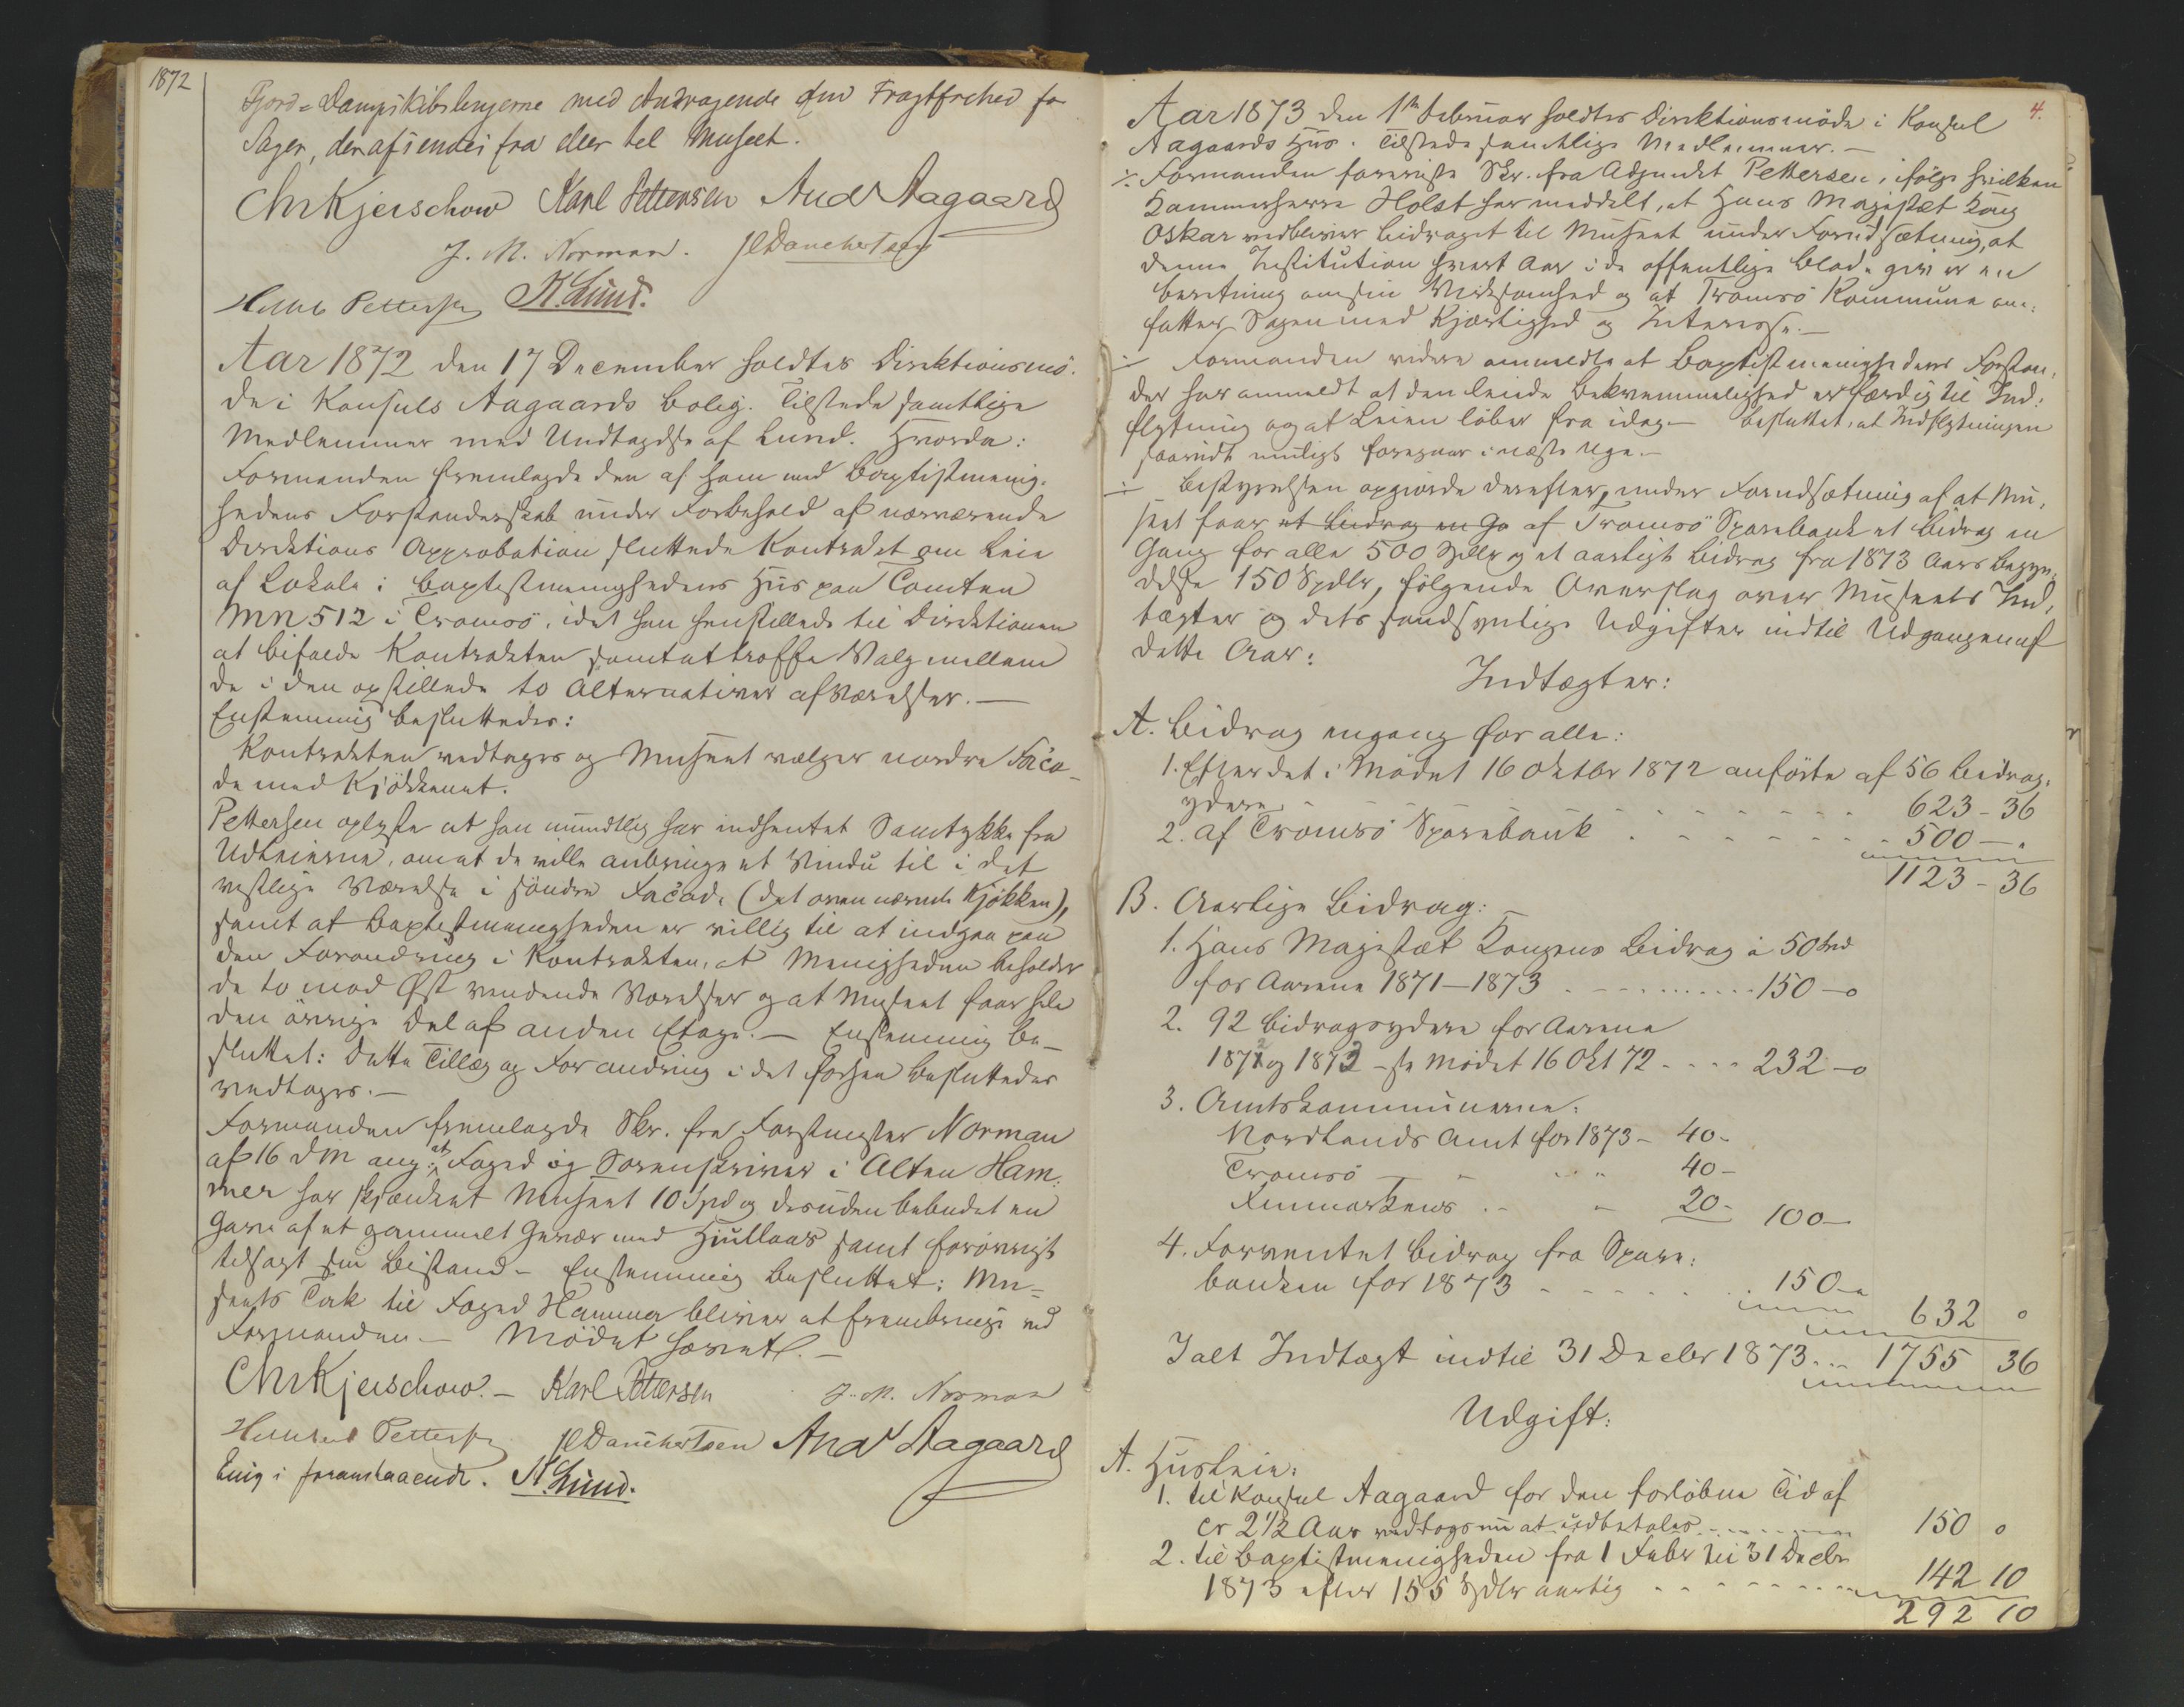 1872
Fjord-Dampskibslinjerne med Andragende om Fragtfrihed for
Sager, der afsendes fra eller til Museet.
Chr Kjerschow Karl Pettersen And Aagaard
J. M. Norman. JLDanchertsen
Pettersen K. Lund.
Aar 1872 den 17 December holdtes Direktionsmö-
de i Konsuls Aagaards bolig. Tilstede samtlige
Medlemmer med Undtagelse af Lund. Hvorda:
Formanden fremlagde den af ham med Baptistmenig-
hedens Forstanderskab under Forbehold af nærværende
Direktions Approbation sluttede Kontrakt om Leie
af Lokale i Baptistmenighedens Hus paa Tomten
MN 512 i Tromsö, idet han henstillede til Direktionen
at bifalde Kontrakten samt at træffe Valg mellem
de i den opstillede to Alternativer af Værelser. —
Enstemmig besluttedes:
Kontrakten vedtages og Museet vælger nordre Faca-
de med Kjökkenet.
Pettersen oplyste at han mundtlig har indhentet Samtykke fra
Udleierne, om at de ville anbringe et Vindu til i det
vestlige Værelse i söndre Facade (det ovennævnte Kjökken),
samt at Baptistmenigheden er villig til at indgaa paa
den Forandring i Kontrakten, at Menigheden beholder
de to mod Øst vendende Værelser og at Museet faar hele
den övrige Del af anden Etage. — Enstemmig be-
sluttet: Dette Tillæg og Forandring i det forhen besluttede
vedtages. —
Formanden fremlagde Skr. fra Forstmester Norman
af 16 dM ang: at Foged og Sorenskriver i Alten Ham-
mer har skjænket Museet 10 Spd og desuden bebudet en
Gave af et gammelt Gevær med Hjullaas samt forövrigt
tilsagt sin Bistand – Enstemmig besluttet: Mu-
seets Tak til Foged Hammer bliver at frembringe ved
Formanden. – Mödet hævet. —
Chr Kjerschow. – Karl Pettersen J. M. Norman
Pettersen JLDanchertsen And Aagaard
Enig i foranstaaende. K. Lund.
4.
Aar 1873 den 1ste Februar holdtes Direktionsmöde i Konsul
Aagaards Hus. Tilstede samtlige Medlemmer. —
÷ Formanden foreviste Skr. fra Adjunkt Pettersen, ifölge hvilken
Kammerherre Holst har meddelt, at Hans Majestæt Kong
Oskar vedbliver bidraget til Museet under Forudsætning, at
denne Institution hvert Aar i de offentlige Blade giver en
beretning om sin Virksomhed og at Tromsö Kommune om-
fatter Sagen med Kjærlighed og Interesse. —
÷ Formanden videre anmeldte at Baptistmenighedens Forstan-
der har anmeldt at den leiede Bekvemmelighed er færdig til Ind-
flytning og at Leien löber fra idag — Besluttet, at Indflytningen
saavidt muligt foregaar i næste Uge. —
÷ Bestyrelsen opgjorde derefter, under Forudsætning af at Mu-
seet faar et Bidrag en Ga af Tromsö Sparebank et Bidrag en
Gang for alle 500 Spdlr og et aarligt Bidrag fra 1873 Aars Begyn-
delse 150 Spdlr, fölgende Overslag over Museets Ind-
tægter og dets sandsynlige Udgifter indtil Udgangen af
dette Aar:
Indtægter:
A. Bidrag engang for alle:
1. Efter det i Mödet 16 Oktbr 1872 anförte af 56 Bidrag-
ydere 623 – 36
2. af Tromsö Sparebank 500 – „
1123 – 36
B. Aarlige Bidrag: –
1. Hans Majestæt Kongens Bidrag á 50 Spd
for Aarene 1871–1873 150 – o
2. 92 bidragsydere for Aarene
1872 og 1873 – se Mödet 16 Okt 72 232 – o
3. Amtskommunerne:
Nordlands Amt for 1873 – 40 –
Tromsö – „ 40 –
Finmarkens „ – 20 – 100 –
4. Forventet Bidrag fra Spare-
banken for 1873 150 – o
632 o
Ialt Indtægt indtil 31 Decbr 1873 1755 36
Udgift:
A. Husleie:
1. til Konsul Aagaard for den forlöbne Tid af
cr 2 1/2 Aar vedtoges nu at udbetales 150 o
2. til Baptistmenigheden fra 1 Febr til 31 Decbr
1873 efter 155 Spdlr aarlig 142 10
292 10